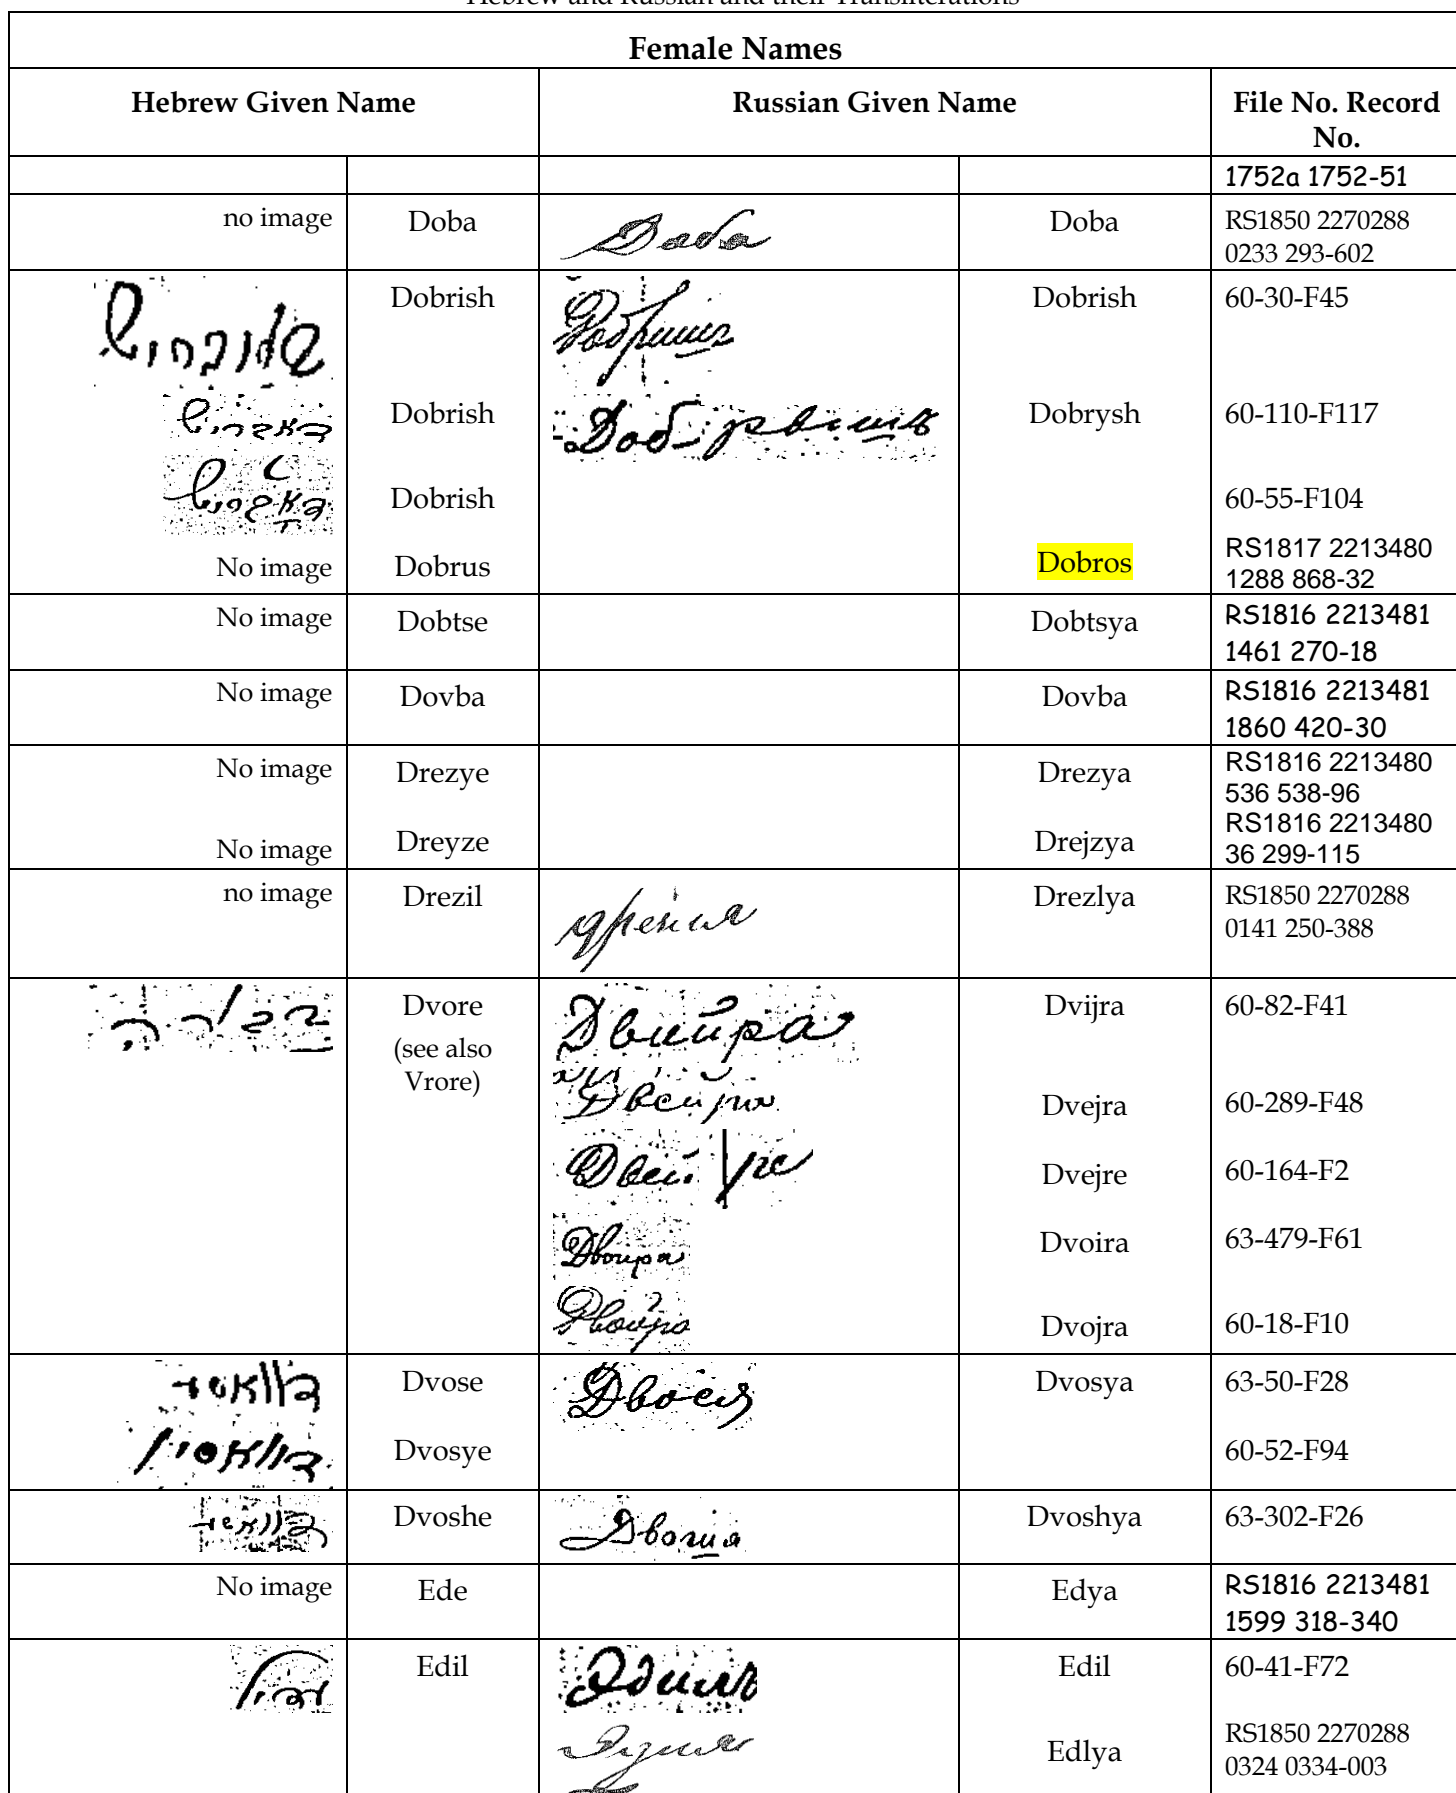 Hebrew and Russian and their Transliterations
Female Names
Hebrew Given Name Russian Given Name File No. Record No.
1752a 1752-51
no image Doba Доба Doba RS1850 2270288
0233 293-602
Dobrish Добришъ Dobrish 60-30-F45
Dobrish Доб-рышъ Dobrysh 60-110-F117
Dobrish 60-55-F104
No image Dobrus Dobros RS1817 2213480
1288 868-32
No image Dobtse Dobtsya RS1816 2213481
1461 270-18
No image Dovba Dovba RS1816 2213481
1860 420-30
No image Drezye Drezya RS1816 2213480
536 538-96
No image Dreyze Drejzya RS1816 2213480
36 299-115
no image Drezil Drezlya RS1850 2270288
0141 250-388
Dvore Двийра Dvijra 60-82-F41
(see also
Vrore)
Двейра Dvejra 60-289-F48
Двейре Dvejre 60-164-F2
Двоира Dvoira 63-479-F61
Двойра Dvojra 60-18-F10
Dvose Двося Dvosya 63-50-F28
Dvosye 60-52-F94
Dvoshe Двошя Dvoshya 63-302-F26
No image Ede Edya RS1816 2213481
1599 318-340
Edil Эдиль Edil 60-41-F72
Edlya RS1850 2270288
0324 0334-003